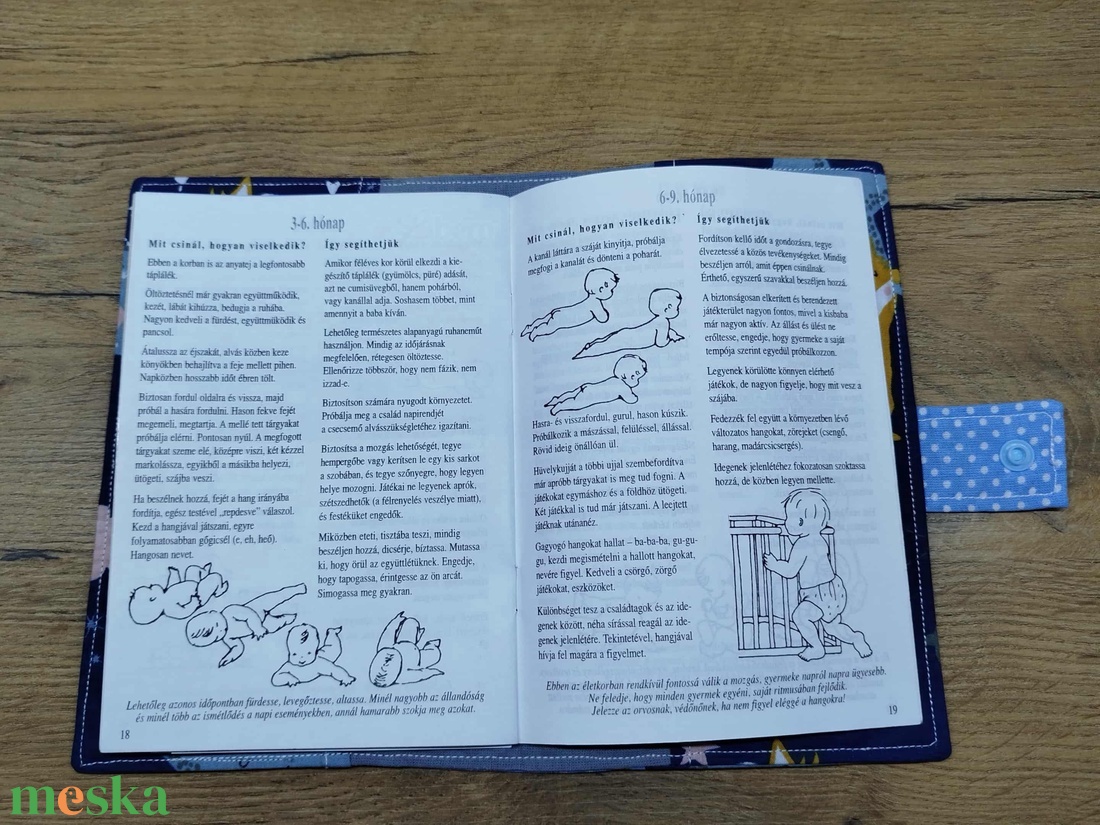 3-6. hónap
Mit csinál, hogyan viselkedik?
Ebben a korban is az anyatej a legfontosabb
táplálék.
Öltöztetésnél már gyakran együttműködik,
kezét, lábát kihúzza, bedugja a ruhába.
Nagyon kedveli a fürdést, együttműködik és
pancsol.
Átalussza az éjszakát, alvás közben keze
könyökben behajlítva a feje mellett pihen.
Napközben hosszabb időt ébren tölt.
Biztosan fordul oldalra és vissza, majd
próbál a hasára fordulni. Hason fekve fejét
megemeli, megtartja. A mellé tett tárgyakat
próbálja elérni. Pontosan nyúl. A megfogott
tárgyakat szeme elé, középre viszi, két kézzel
markolássza, egyikből a másikba helyezi,
ütögeti, szájba veszi.
Ha beszélnek hozzá, fejét a hang irányába
fordítja, egész testével „repdesve” válaszol.
Kezd a hangjával játszani, egyre
folyamatosabban gőgicsél (e, eh, heő).
Hangosan nevet.
Így segíthetjük
Amikor féléves kor körül elkezdi a ki-
egészítő táplálék (gyümölcs, püré) adását,
azt ne cumisüvegből, hanem pohárból,
vagy kanállal adja. Soshasem többet, mint
amennyit a baba kíván.
Lehetőleg természetes alapanyagú ruhaneműt
használjon. Mindig az időjárásnak
megfelelően, rétegesen öltöztesse.
Ellenőrizze többször, hogy nem fázik, nem
izzad-e.
Biztosítson számára nyugodt környezetet.
Próbálja meg a család napirendjét
a csecsemő alvásszükségletéhez igazítani.
Biztosítsa a mozgás lehetőségét, tegye
hempergőbe vagy kerítsen le egy kis sarkot
a szobában, és tegye szőnyegre, hogy legyen
helye mozogni. Játékai ne legyenek aprók,
szétszedhetők (a félrenyelés veszélye miatt),
és festéküket engedők.
Miközben eteti, tisztába teszi, mindig
beszéljen hozzá, dicsérje, bíztassa. Mutassa
ki, hogy örül az együttlétüknek. Engedje,
hogy tapogassa, érintgesse az ön arcát.
Simogassa meg gyakran.
Lehetőleg azonos időpontban fürdesse, levegőztesse, altassa. Minél nagyobb az állandóság
és minél több az ismétlődés a napi eseményekben, annál hamarabb szokja meg azokat.
18
6-9. hónap
Mit csinál, hogyan viselkedik?
A kanál láttára a száját kinyitja, próbálja
megfogi a kanalát és dönteni a poharát.
Hasra- és visszafordul, gurul, hason kúszik.
Próbálkozik a mászással, felüléssel, állással.
Rövid ideig önállóan ül.
Hüvelykujját a többi ujjal szembefordítva
már apróbb tárgyakat is meg tud fogni. A
játékokat egymáshoz és a földhöz ütögeti.
Két játékkal is tud már játszani. A leejtett
játéknak utánanéz.
Gagyogó hangokat hallat – ba-ba-ba, gu-gu-
gu, kezdi megismételni a hallott hangokat,
nevére figyel. Kedveli a csörgő, zörgő
játékokat, eszközöket.
Különbséget tesz a családtagok és az ide-
genek között, néha sírással reagál az ide-
genek jelenlétére. Tekintetével, hangjával
hívja fel magára a figyelmet.
Így segíthetjük
Fordítson kellő időt a gondozásra, tegye
élvezetessé a közös tevékenységeket. Mindig
beszéljen arról, amit éppen csinálnak.
Érthető, egyszerű szavakkal beszéljen hozzá.
A biztonságosan elkerített és berendezett
játékterület nagyon fontos, mivel a kisbaba
már nagyon aktív. Az állást és ülést ne
erőltesse, engedje, hogy gyermeke a saját
tempója szerint egyedül próbálkozzon.
Legyenek körülötte könnyen elérhető
játékok, de nagyon figyelje, hogy mit vesz a
szájába.
Fedezzék fel együtt a környezetben lévő
változatos hangokat, zörejeket (csengő,
harang, madárcsicsergés).
Idegenek jelenlétéhez fokozatosan szoktassa
hozzá, de közben legyen mellette.
Ebben az életkorban rendkívül fontossá válik a mozgás, gyermeke napról napra ügyesebb.
Ne feledje, hogy minden gyermek egyéni, saját ritmusában fejlődik.
Jelezze az orvosnak, védőnőnek, ha nem figyel eléggé a hangokra!
19
meska